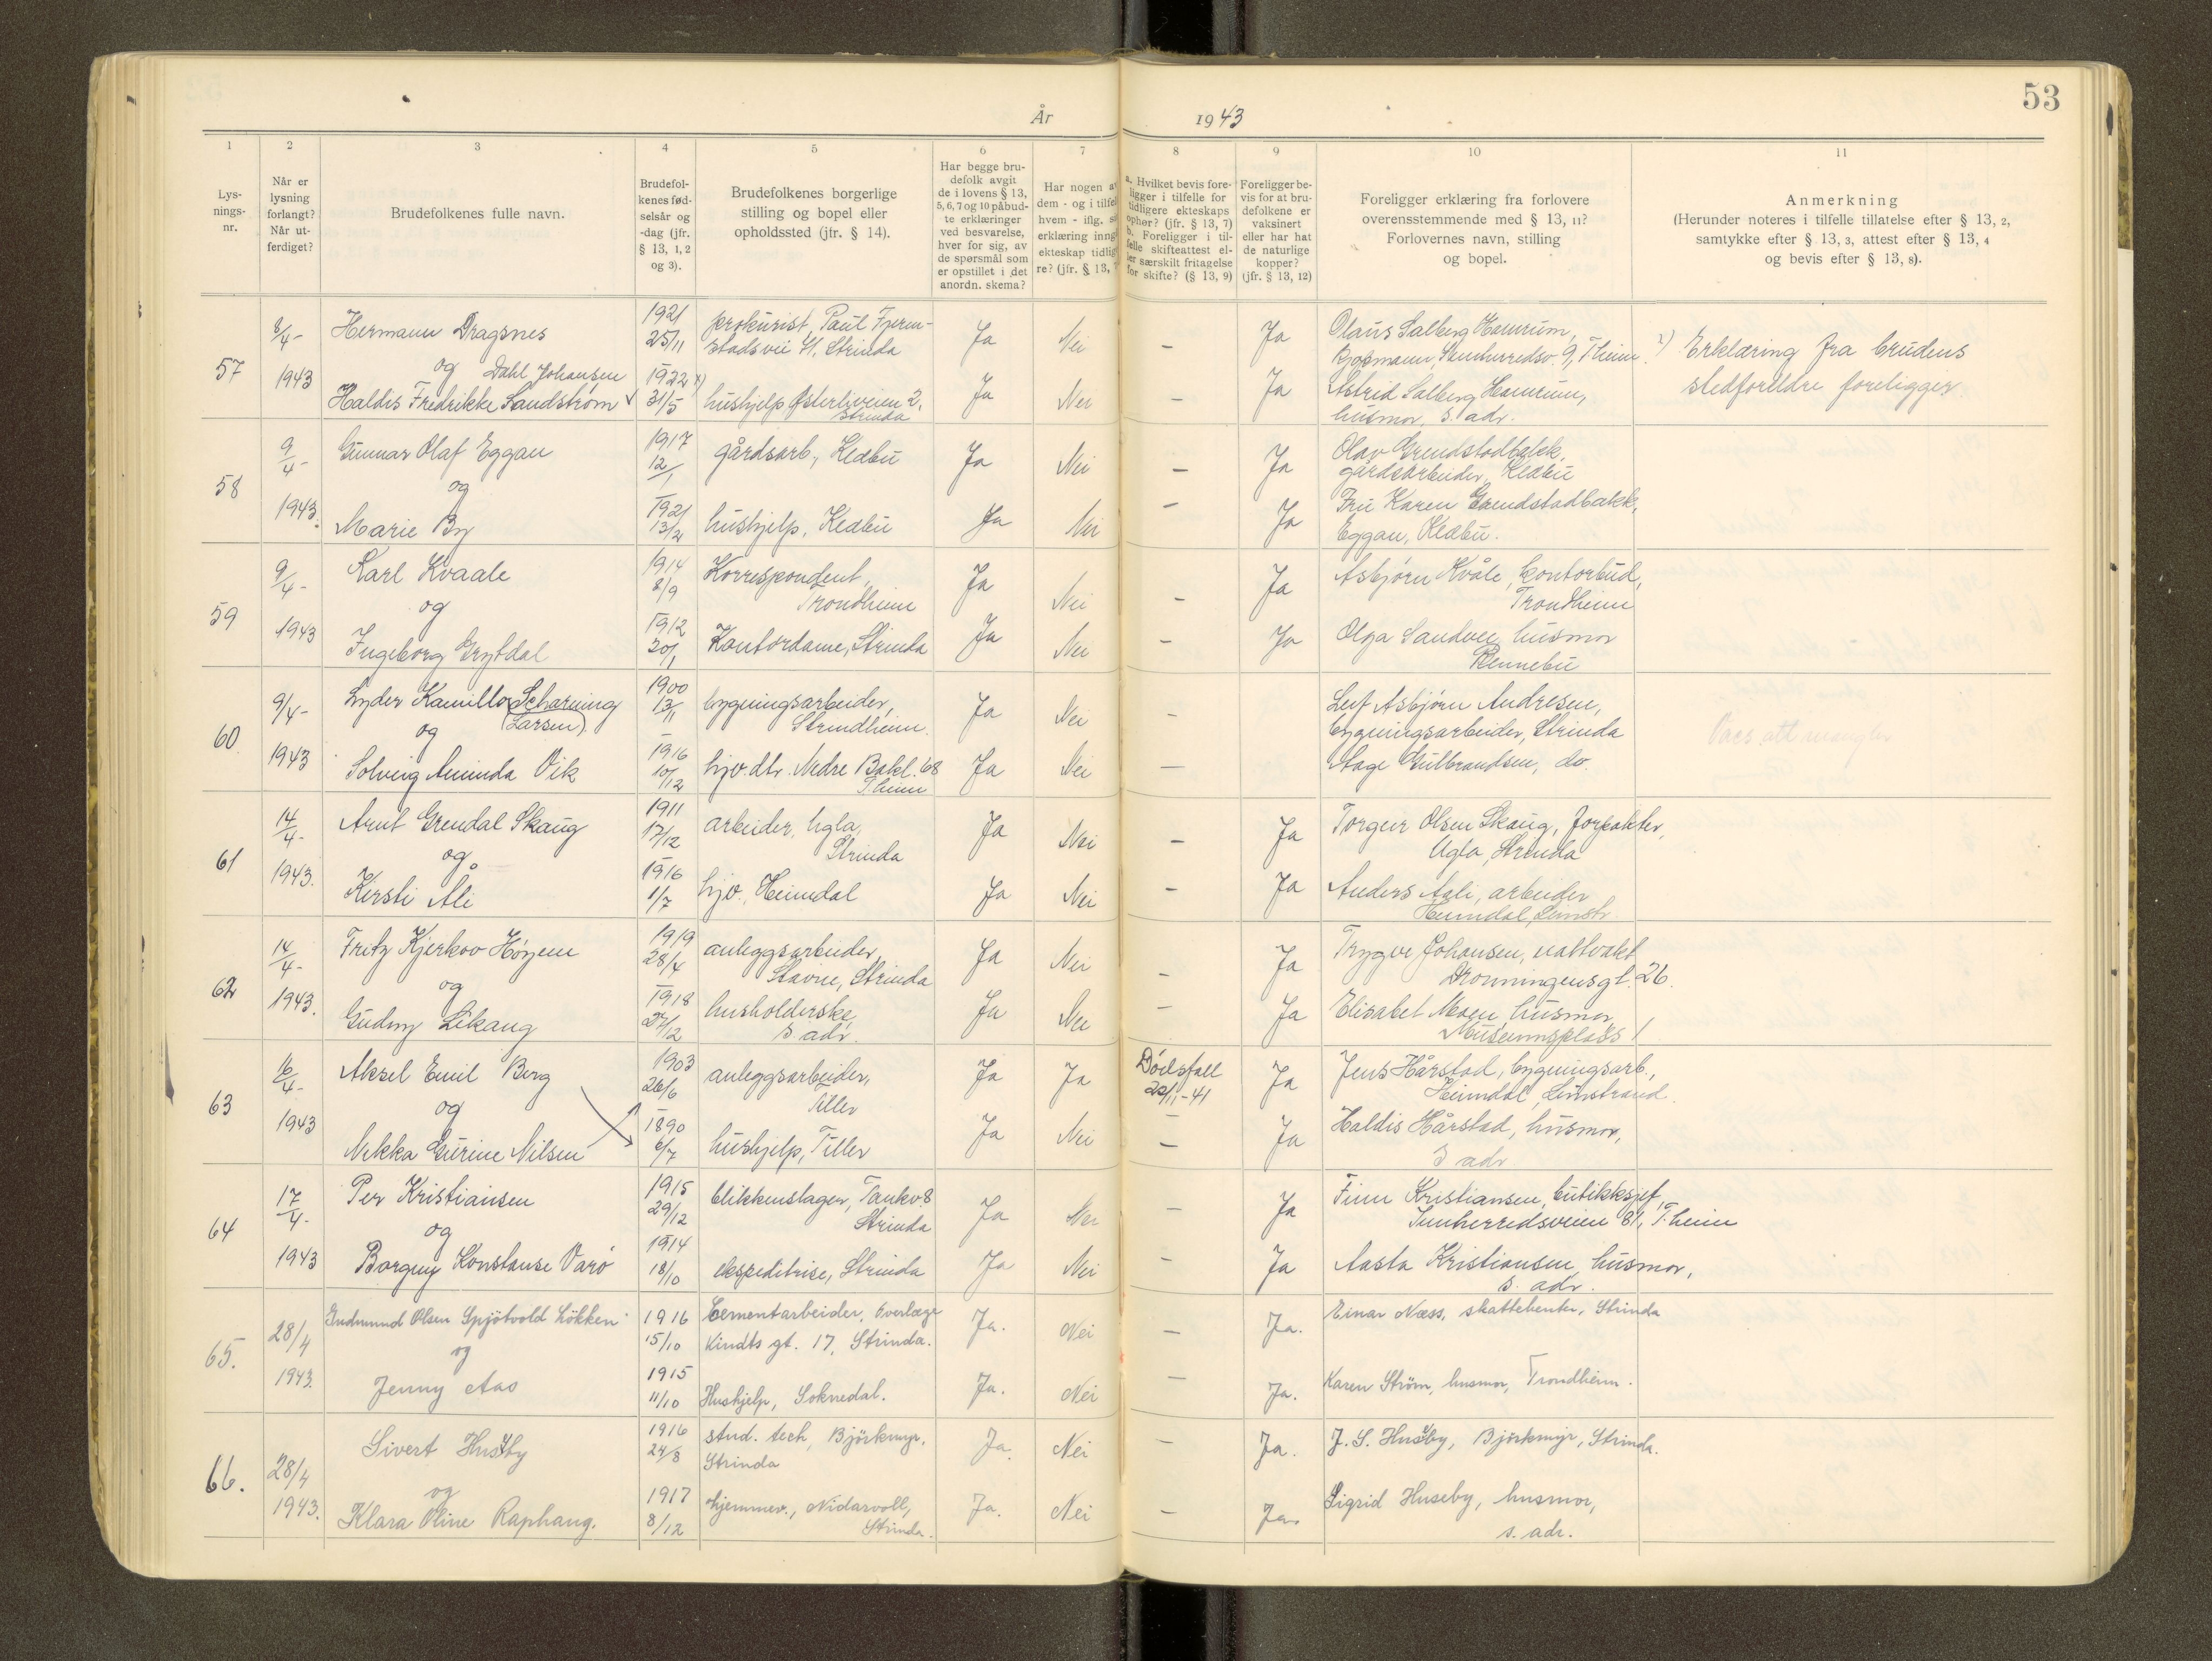 53
År 1943
1
2
3
4
5
6
7
8
9
10
11
Lys-
nings-
nr.
Når er
lysning
forlangt?
Når ut-
ferdiget?
Brudefolkenes fulle navn.
Brudefol-
kenes fød-
selsår og
-dag (jfr.
§ 13, 1, 2
og 3).
Brudefolkenes borgerlige
stilling og bopel eller
opholdssted (jfr. § 14).
Har begge bru-
defolk avgit
de i lovens § 13,
5, 6, 7 og 10 påbud-
te erklæringer
ved besvarelse,
hver for sig, av
de spørsmål som
er opstillet i det
anordn. skema?
Har nogen a
dem - og i tilfel
hvem - iflg. s
erklæring inng
ekteskap tidlig
re? (jfr. § 13,
a. Hvilket bevis fore-
ligger i tilfelle for
tidligere ekteskaps
ophør? (jfr. § 13, 7)
b. Foreligger i til-
felle skifteattest el-
ler særskilt fritagelse
for skifte? (§ 13, 9)
Foreligger be-
vis for at bru-
defolkene er
vaksinert
eller har hat
de naturlige
kopper?
(jfr. § 13, 12)
Foreligger erklæring fra forlovere
overensstemmende med § 13, 11?
Forlovernes navn, stilling
og bopel.
Anmerkning
(Herunder noteres i tilfelle tillatelse efter § 13, 2,
samtykke efter § 13, 3, attest efter § 13, 4
og bevis efter § 13, 8).
57
8/4-
1943
Hermann Dragsnes
og Dahl Johansen
Haldis Fredrikke Sandstrøm
1921
25/11
1922 x)
31/5
prokurist, Paul Fjerm-
stadsvei 41, Strinda
hushjelp Østerlieveien 2,
Strinda
Ja Nei — Ja
Ja Nei — Ja
Olaus Salberg Hamrum,
kjøpmann, Innherredsv. 9, T.heim
Astrid Salberg Hamrum,
husmor, s. adr.
x) Erklæring fra brudens
stedforeldre foreligger.
58
9/4-
1943.
Gunnar Olaf Eggan
og
Marie By
1917
12/1
1921
13/2
gårdsarb., Klæbu
hushjelp, Klæbu
Ja Nei — Ja
Ja Nei — Ja
Olav Grendstadbakk,
gårdsarbeider, Klæbu
Fru Karen Grendstadbakk,
Eggan, Klæbu.
59
9/4-
1943
Karl Kvaale
og
Ingeborg Grytdal
1914
8/9
1912
20/1
Korrespondent,
Trondheim
Kontordame, Strinda
Ja Nei — Ja
Ja Nei — Ja
Asbjørn Kvåle, kontorbud,
Trondheim
Olga Sandvee, husmor
Rennebu
60
9/4-
1943
Lyder Kamillo Scharning
(Larsen)
og
Solveig Aminda Vik
1900
13/11
1916
10/12
bygningsarbeider,
Strindheim.
hjv. dtr. Nedre Bakl. 68
T.heim
Ja Nei —
Ja Nei —
Leif Asbjørn Andresen,
bygningsarbeider, Strinda
Aage Gulbrandsen, do.
Vacs. att mangler
61
14/4-
1943.
Arnt Grendal Skaug
og
Kersti Åli
1911
17/12
1916
1/7
arbeider, Ugla,
Strinda
hjv., Heimdal
Ja Nei — Ja
Ja Nei — Ja
Torgeir Olsen Skaug, forpakter,
Ugla, Strinda
Anders Aali, arbeider
Heimdal, Leinstr.
62
14/4-
1943.
Fritz Kjerkvo Høyem
og
Gudny Likaug
1919
28/4
1918
27/12
anleggsarbeider,
Stavne, Strinda
husholderske
s adr.
Ja Nei — Ja
Ja Nei — Ja
Trygve Johansen, nattvakt
Dronningensgt. 26.
Elisabet Moen husmor
Museumsplass 1
63
16/4-
1943
Aksel Emil Berg
og
Nikka Gurine Nilsen
1903
26/6
1890
6/7
anleggsarbeider,
Tiller
hushjelp, Tiller
Ja Ja Dødsfall
22/11-41 Ja
Ja Nei — Ja
Jens Hårstad, bygningsarb.,
Heimdal, Leinstrand.
Haldis Hårstad, husmor,
s adr.
64
17/4-
1943
Per Kristiansen
og
Borgny Konstanse Varø
1915
29/12
1914
18/10
blikkenslager, Tankv. 8
Strinda
ekspeditrise, Strinda
Ja Nei — Ja
Ja Nei — Ja
Finn Kristiansen, butikksjef,
Innherredsveien 81, T.heim
Aasta Kristiansen, husmor,
s. adr.
65.
28/4
1943.
Gudmund Olsen Spjötvold Lökken
og
Jenny Aas
1916
15/10
1915
11/10
Cementarbeider, Overlæge
Kindts gt. 17, Strinda.
Hushjelp, Soknedal.
Ja. Nei — Ja.
Ja. Nei — Ja.
Einar Næss, skattebetn., Strinda
Karen Strøm, husmor, Trondheim.
66.
28/4
1943.
Sivert Huseby
og
Klara Oline Raphaug.
1916
24/8
1917
8/12
stud. tech, Björkmyr,
Strinda
hjemmev., Nidarvoll,
Strinda.
Ja. Nei — Ja.
Ja. Nei — Ja.
J. S. Huseby, Björkmyr, Strinda.
Sigrid Huseby, husmor,
s. adr.